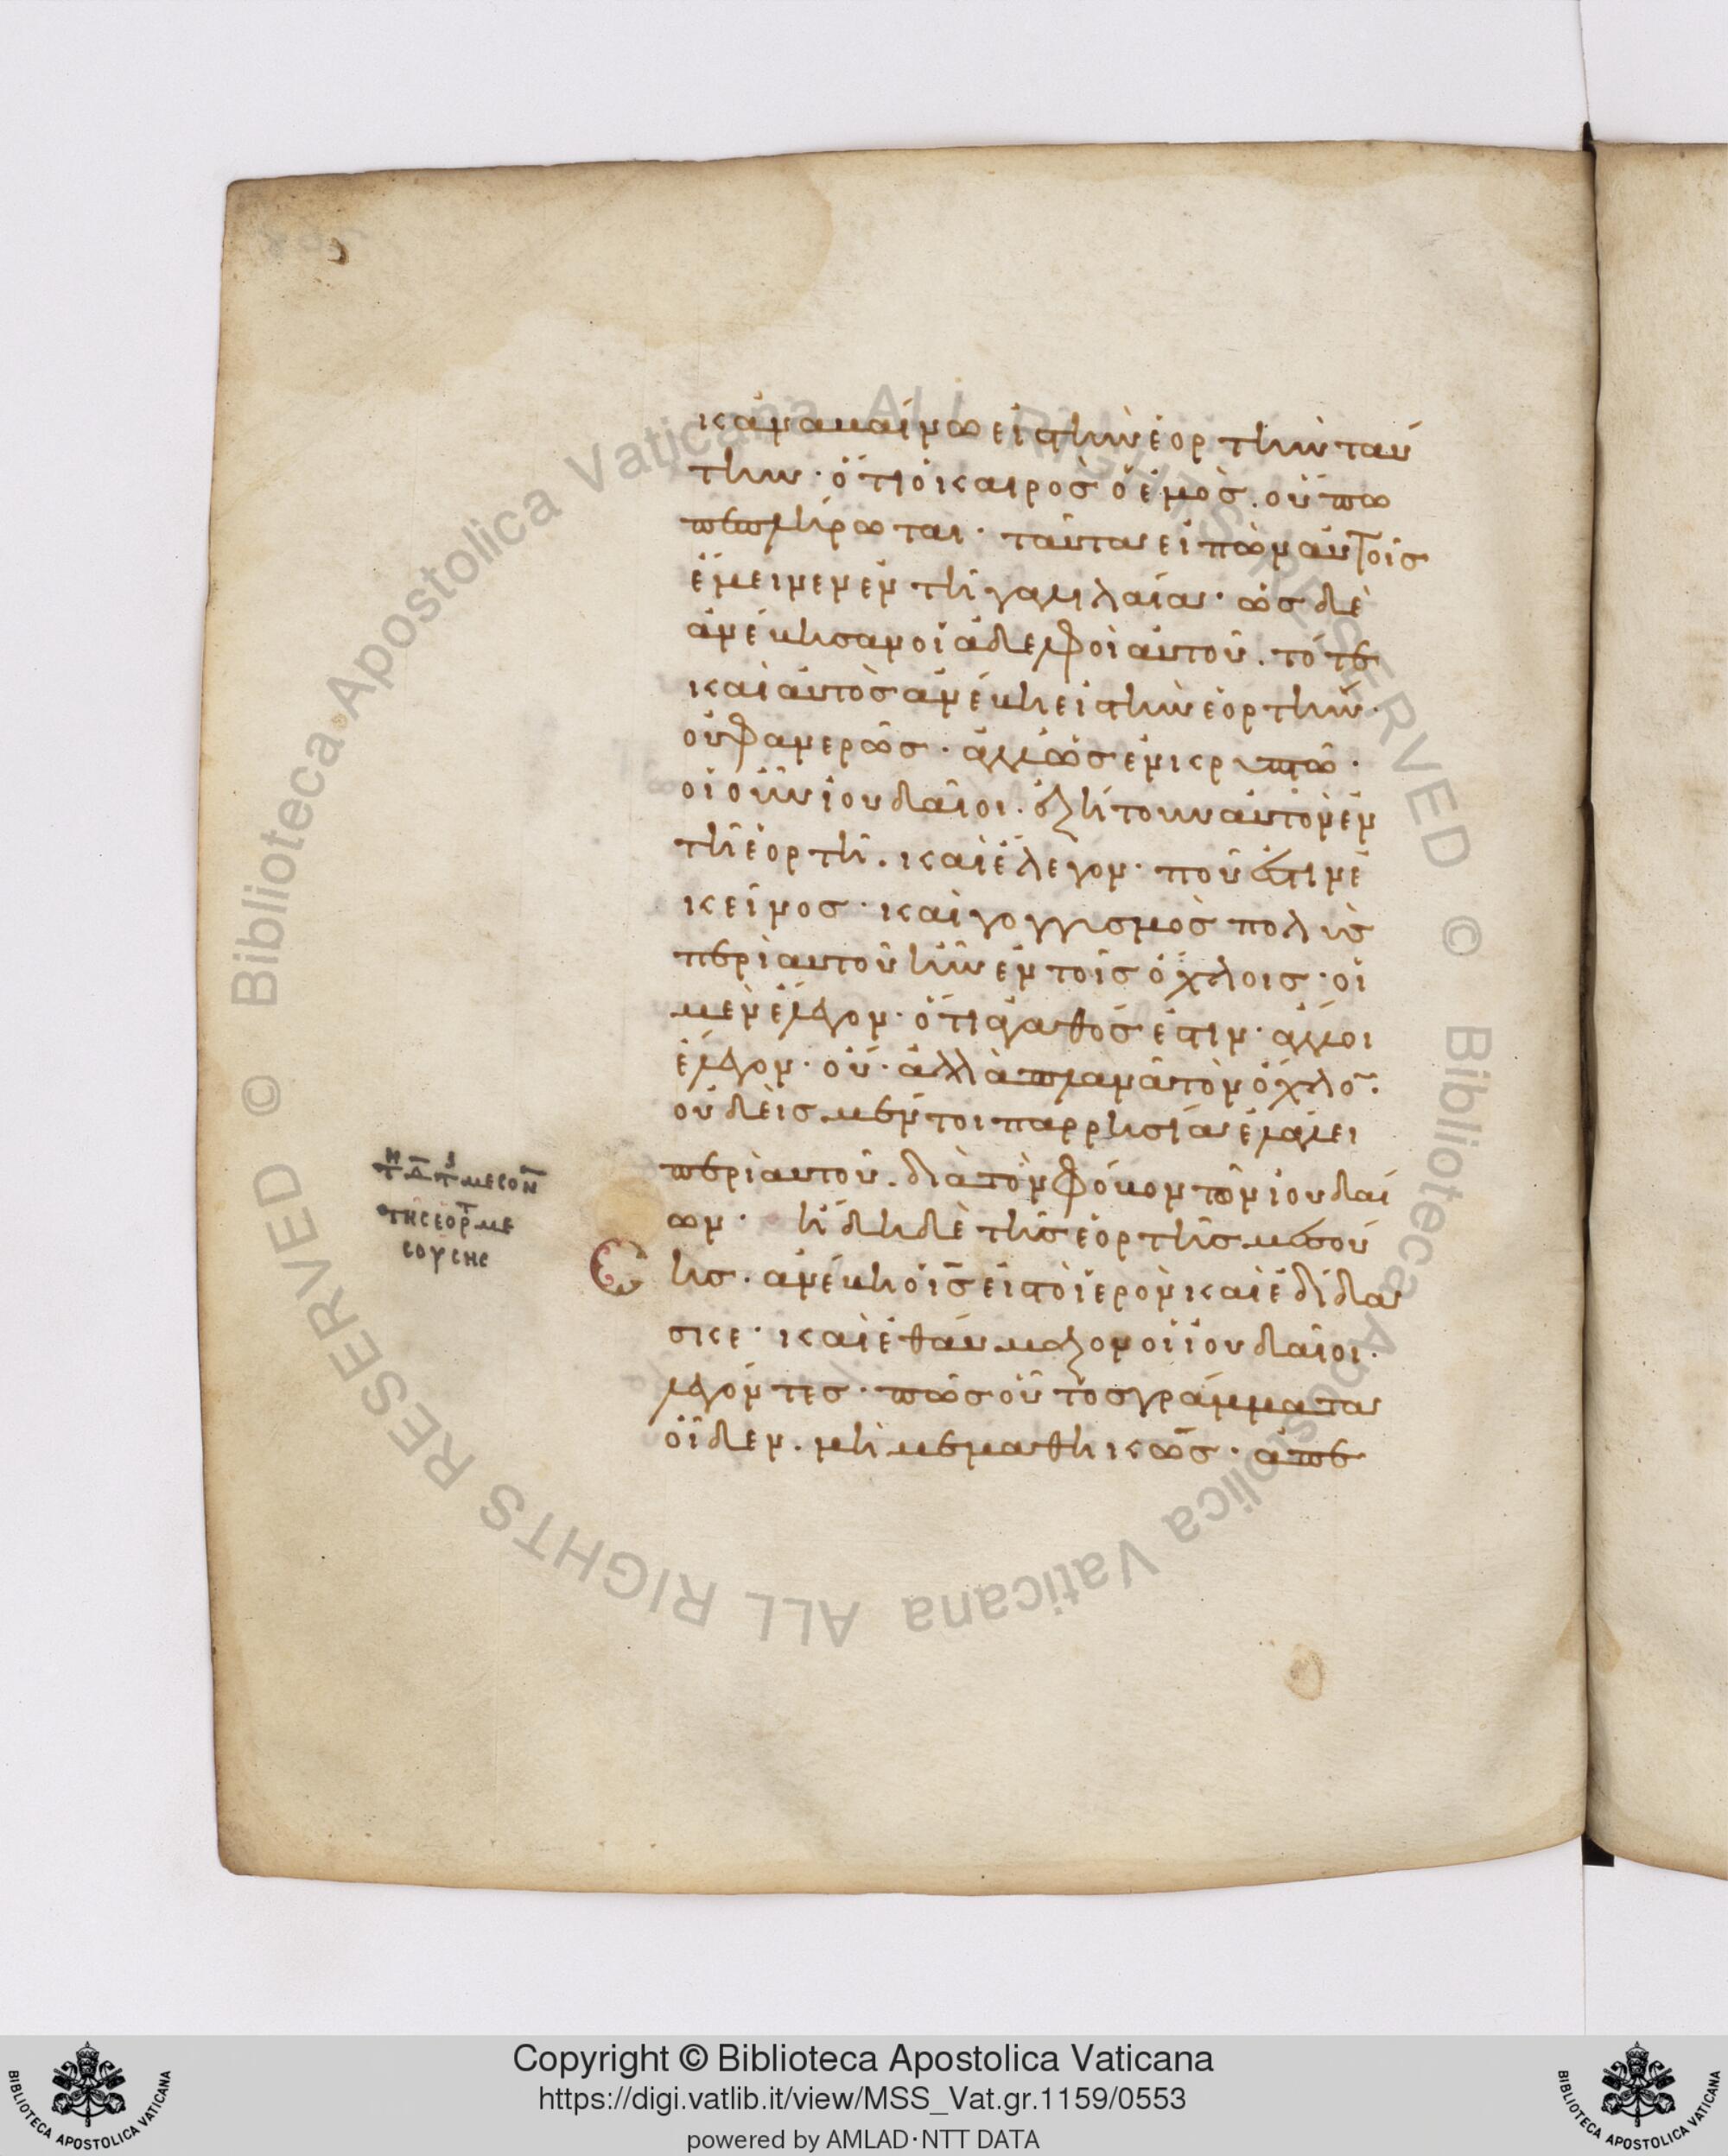 κἀναναβαίνω εἰς τὴν ἑορτὴν ταύ
την· ὅτι ὁ καιρὸς ὁ ἐμὸς. οὔπω
πεπλήρωται· ταῦτα εἰπὼν αὐτοῖς
ἔμεινεν ἐν τῇ γαλιλαία· ὡς δὲ
ἀνέβησαν οἱ ἀδελφοὶ αὐτοῦ. τότε
καὶ αὐτὸς ἀνέβη εἰς τὴν ἑορτήν·
οὐ φανερῶς· ἀλλ' ὡς ἐν κρυπτῶ·
οἱ οὖν ἰουδαῖοι. ἐζήτουν αὐτὸν ἐν
τῇ ἑορτῇ. καὶ ἔλεγον· ποῦ ἐστιν ἐ
κεῖνος· καὶ γογγισμὸς πολὺς
περὶ αὐτοῦ ἦν ἐν τοῖς ὄχλοις· οἱ
μὲν ἔλεγον· ὅτι ἀγαθός ἐστιν· ἄλλοι
ἔλεγον· οὔ· ἀλλὰ πλανᾶ τὸν ὄχλο̅·
οὐδεὶς μέντοι παρρησία ἐλάλει
περὶ αὐτοῦ. διὰ τὸν φόβον τῶν ἰουδαί
ων· ἤδη δὲ τῆς ἑορτῆς μεσού
σης. ἀνέβη ὁ ι̅ς̅ εἰς τὸ ἱερὸν καὶ ἐδίδα
σκε· καὶ ἐθαύμαζον οἱ ἰουδαῖοι.
λέγοντες· πῶς οὗτος γράμματα
οἶδεν. μὴ μεμαθηκώς· ἀπε
τῆς ἑορτ με
σούσης
Copyright © Biblioteca Apostolica Vaticana
https://digi.vatlib.it/view/MSS_Vat.gr.1159/0553
powered by AMLAD·NTT DATA
BIBLIOTECA APOSTOLICA VATICANA
BIBLIOTECA APOSTOLICA VATICANA
© Biblioteca Apostolica Vaticana ALL RIGHTS RESERVED © Biblioteca Apostolica Vaticana ALL RIGHTS RESERVED